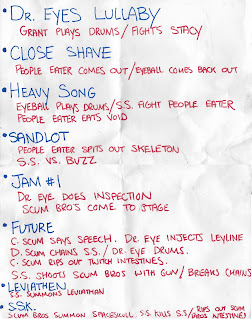 • DR. EYES LULLABY
GRANT PLAYS DRUMS / FIGHTS STACY
• CLOSE SHAVE
PEOPLE EATER COMES OUT / EYEBALL COMES BACK OUT
• HEAVY SONG
EYEBALL PLAYS DRUMS / S.S. FIGHT PEOPLE EATER
PEOPLE EATER EATS VOID
• SANDLOT
PEOPLE EATER SPITS OUT SKELETON
S.S. VS. BUZZ
• JAM #1
DR EYE DOES INSPECTION
SCUM BRO'S COME TO STAGE
• FUTURE
C. SCUM SAYS SPEECH. DR. EYE INJECTS LEYLINE
D. SCUM CHAINS S.S. / DR. EYE DRUMS.
C. SCUM RIPS OUT TWITCH INTESTINES.
S.S. SHOOTS SCUM BROS WITH GUN / BREAKS CHAINS
• LEVIATHEN
S.S. SUMMONS LEVIATHAN
• SSK.
SCUM BROS SUMMON SPACESKULL S.S. KILLS S.S / RIPS OUT SCUM BROS INTESTINES